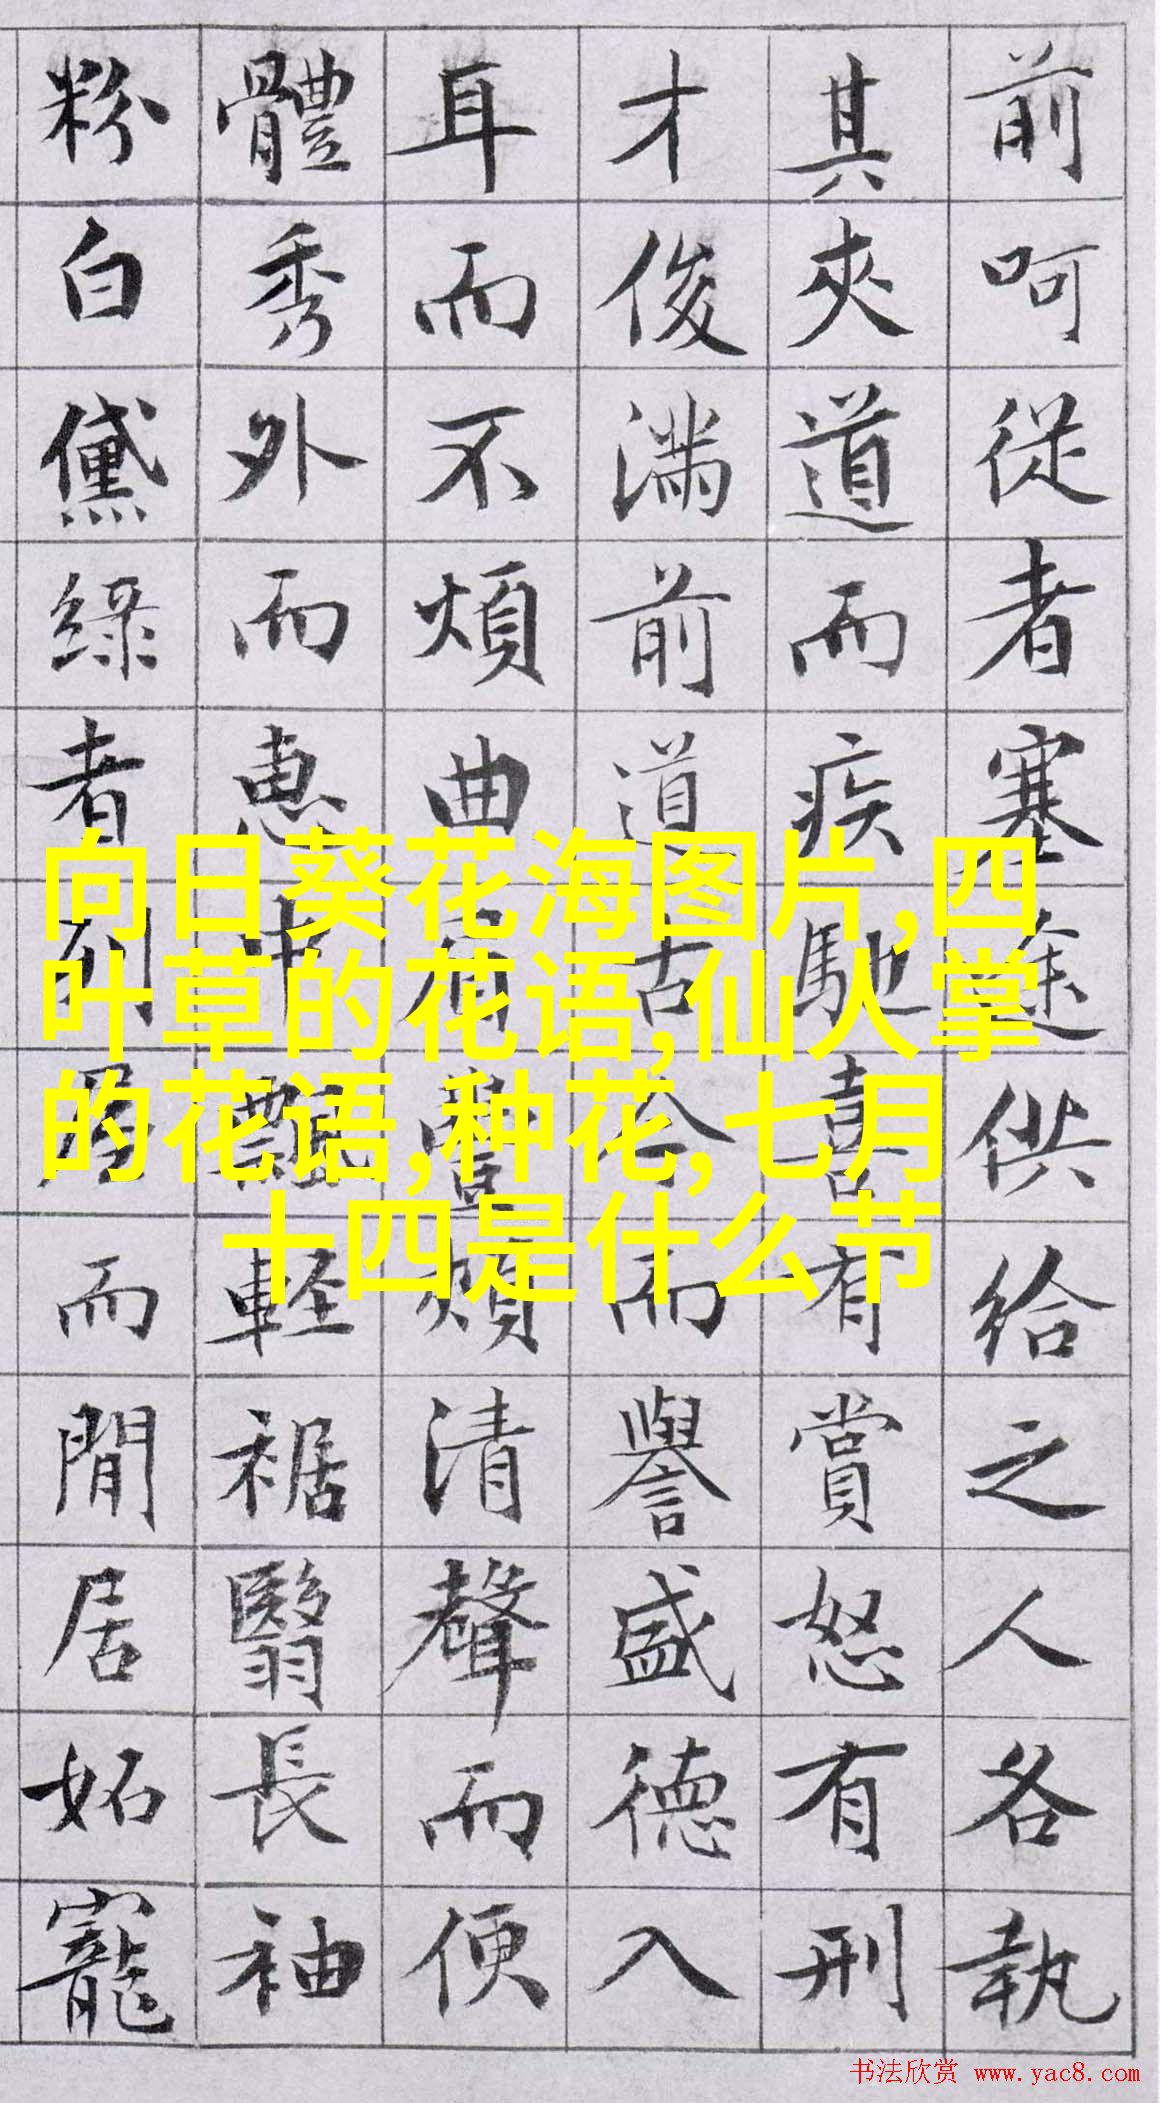 前呵從者塞途供給之人各執
其夾道而疾馳喜有賞怒有刑
才俊滿前道古今而譽盛德入
耳而不煩曲眉豐頰清聲而便
體秀外而惠中飄輕裾翳長袖
粉白黛綠者列屋而閒居妬寵
向日葵花海图片,四
叶草的花语,仙人掌
的花语,种花,七月
十四是什么节
书法欣赏 www.yac8.com